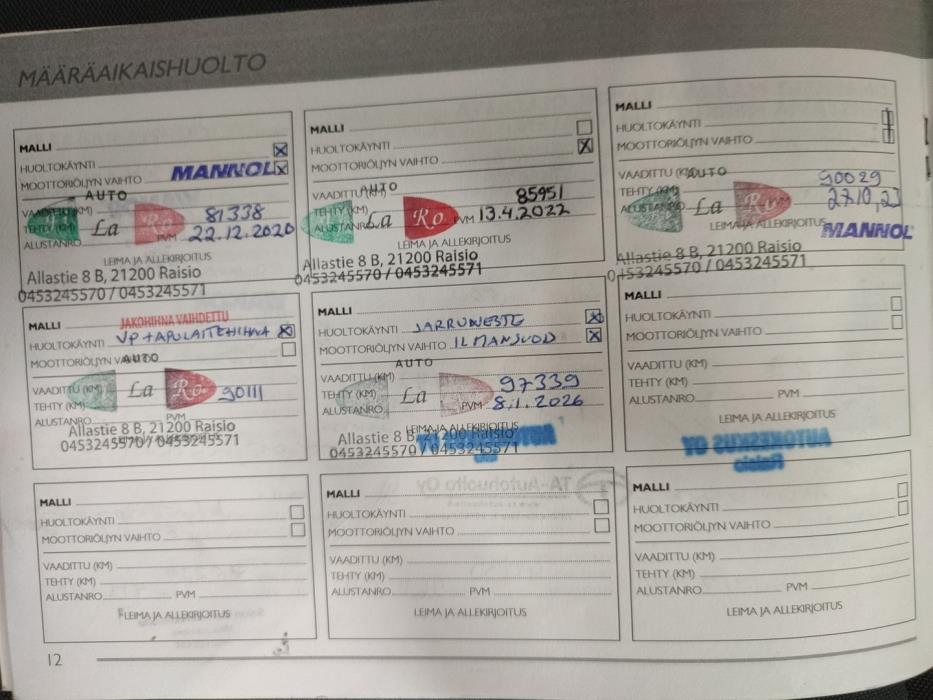 MÄÄRÄAIKAISHUOLTO
MALLI
HUOLTOKÄYNTI
MOOTTORIÖLJYN VAIHTO MANNOL
AUTO
VAADITTU (KM)
TEHTY (KM) La Ro 81338
ALUSTANRO PVM 22.12.2020
LEIMA JA ALLEKIRJOITUS
Allastie 8 B, 21200 Raisio
0453245570 / 0453245571
MALLI
HUOLTOKÄYNTI
MOOTTORIÖLJYN VAIHTO
VAADITTU (KM) AUTO 85951
TEHTY (KM) La Ro
ALUSTANRO PVM 13.4.2022
LEIMA JA ALLEKIRJOITUS
Allastie 8 B, 21200 Raisio
0453245570 / 0453245571
MALLI
HUOLTOKÄYNTI
MOOTTORIÖLJYN VAIHTO
VAADITTU (KM) AUTO
TEHTY (KM) 90029
ALUSTANRO La Ro 27.10,23
LEIMA JA ALLEKIRJOITUS MANNOL
Allastie 8 B, 21200 Raisio
0453245570 / 0453245571
MALLI JAKOHIHNA VAIHDETTU
HUOLTOKÄYNTI VP + APULAITEHIHNA
MOOTTORIÖLJYN VAIHTO
AUTO
VAADITTU (KM) La Ro 90111
TEHTY (KM)
ALUSTANRO PVM
Allastie 8 B, 21200 Raisio
0453245570 / 0453245571
MALLI
HUOLTOKÄYNTI JARRUNESTE
MOOTTORIÖLJYN VAIHTO ILMANSUOD
AUTO
VAADITTU (KM)
TEHTY (KM) La Ro 97339
ALUSTANRO PVM 8.1.2026
LEIMA JA ALLEKIRJOITUS
Allastie 8 B, 21200 Raisio
0453245570 / 0453245571
MALLI
HUOLTOKÄYNTI
MOOTTORIÖLJYN VAIHTO
VAADITTU (KM)
TEHTY (KM)
ALUSTANRO PVM
LEIMA JA ALLEKIRJOITUS
AUTOKESKUS OY
Raisio
MALLI
HUOLTOKÄYNTI
MOOTTORIÖLJYN VAIHTO
VAADITTU (KM)
TEHTY (KM)
ALUSTANRO PVM
LEIMA JA ALLEKIRJOITUS
TA-Autohuolto Oy
MALLI
HUOLTOKÄYNTI
MOOTTORIÖLJYN VAIHTO
VAADITTU (KM)
TEHTY (KM)
ALUSTANRO PVM
LEIMA JA ALLEKIRJOITUS
MALLI
HUOLTOKÄYNTI
MOOTTORIÖLJYN VAIHTO
VAADITTU (KM)
TEHTY (KM)
ALUSTANRO PVM
LEIMA JA ALLEKIRJOITUS
12